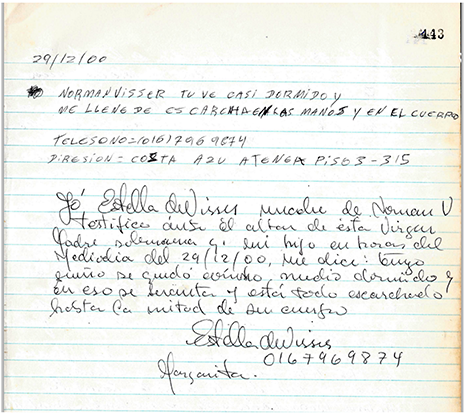 443
29/12/00
NORMAN VISSER TUVE CASI DORMIDO Y
ME LLENE DE ESCARCHA EN LAS MANOS Y EN EL CUERPO
TELESONO=(016)7969874
DIRESION= COSTA AZU ATENEA PISO3-315
Yó Estella de Visser madre de Norman V
testifico ante el altar de esta Virgen
Madre soberana q. mi hijo en horas del
Mediodia del 29/12/00, me dice: tengo
sueño se quedó como medio dormido y
en eso se levanta y está todo escarchado
hasta la mitad de su cuerpo
Estella de Visser
0167969874
Margarita.